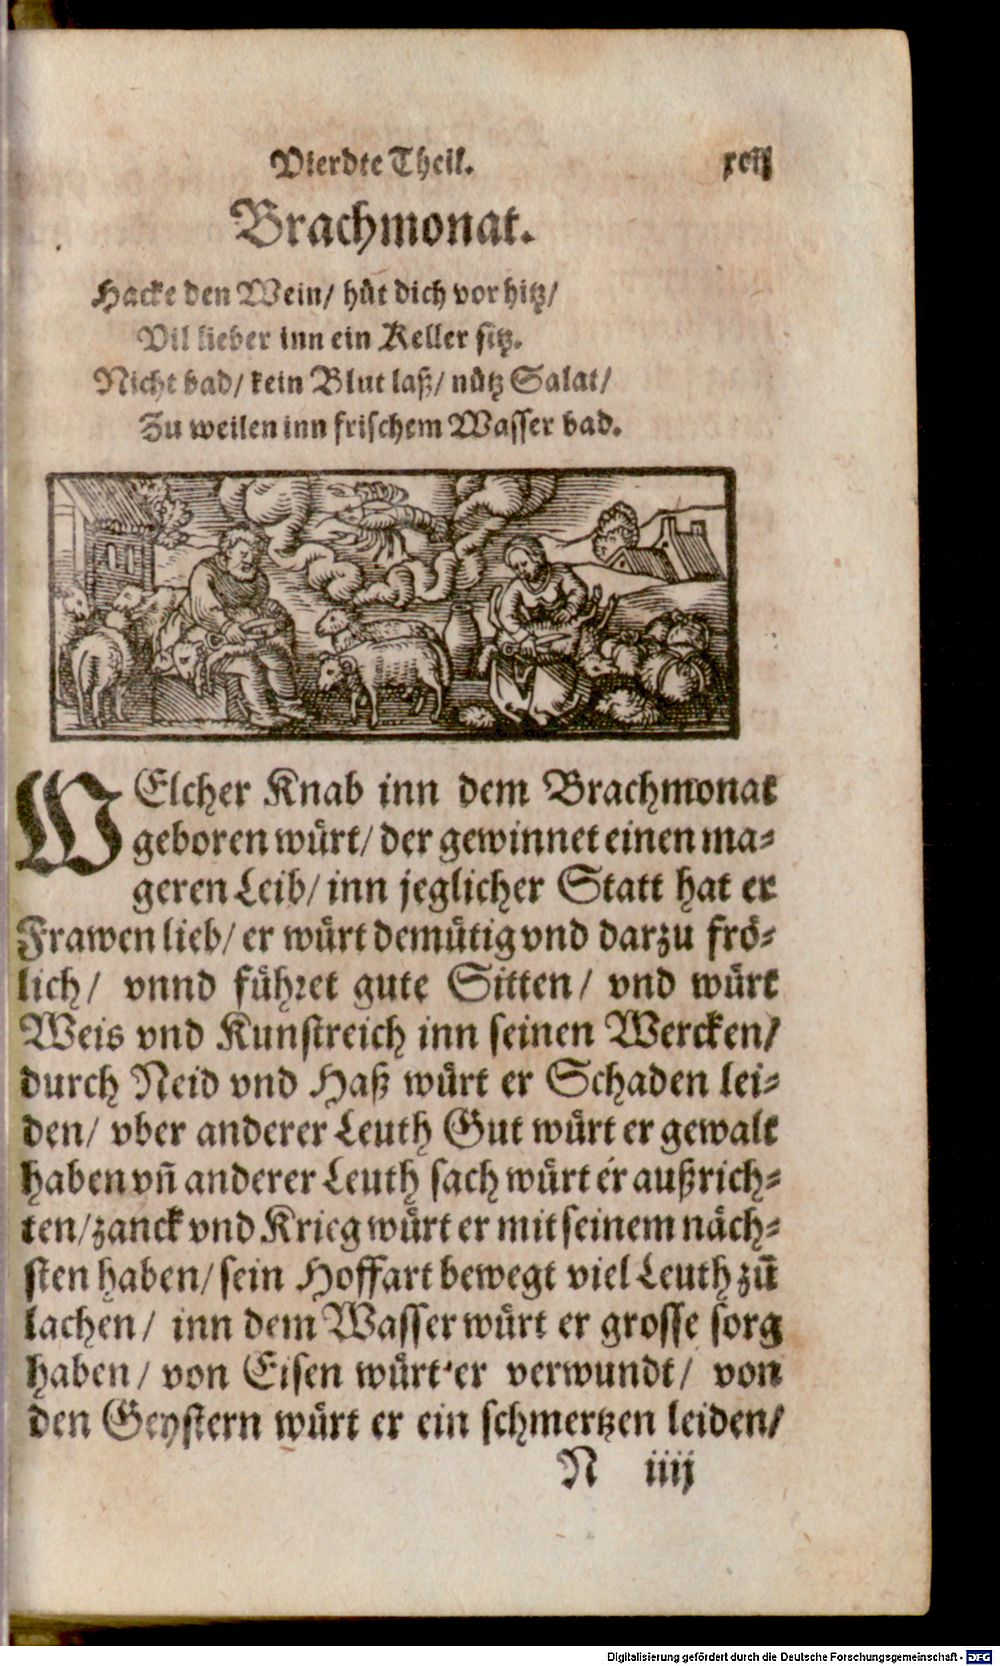 Vierdte Theil. xciij
Brachmonat.
Hacke den Wein/ hůt dich vor hitz/
Vil lieber inn ein Keller sitz.
Nicht bad/ kein Blut laß/ nůtz Salat/
Zu weilen inn frischem Wasser bad.
WElcher Knab inn dem Brachmonat
geboren wůrt/ der gewinnet einen ma⸗
geren Leib/ inn jeglicher Statt hat er
Frawen lieb/ er wůrt demůtig vnd darzu frö⸗
lich/ vnnd fůhret gute Sitten/ vnd wůrt
Weis vnd Kunstreich inn seinen Wercken/
durch Neid vnd Haß wůrt er Schaden lei⸗
den/ vber anderer Leuth Gut wůrt er gewalt
haben vñ anderer Leuth sach wůrt er außrich⸗
ten/ zanck vnd Krieg wůrt er mit seinem näch⸗
sten haben/ sein Hoffart bewegt viel Leuth zū
lachen/ inn dem Wasser wůrt er grosse sorg
haben/ von Eisen wůrt er verwundt/ von
den Geystern wůrt er ein schmertzen leiden/
N iiij
Digitalisierung gefördert durch die Deutsche Forschungsgemeinschaft - DFG